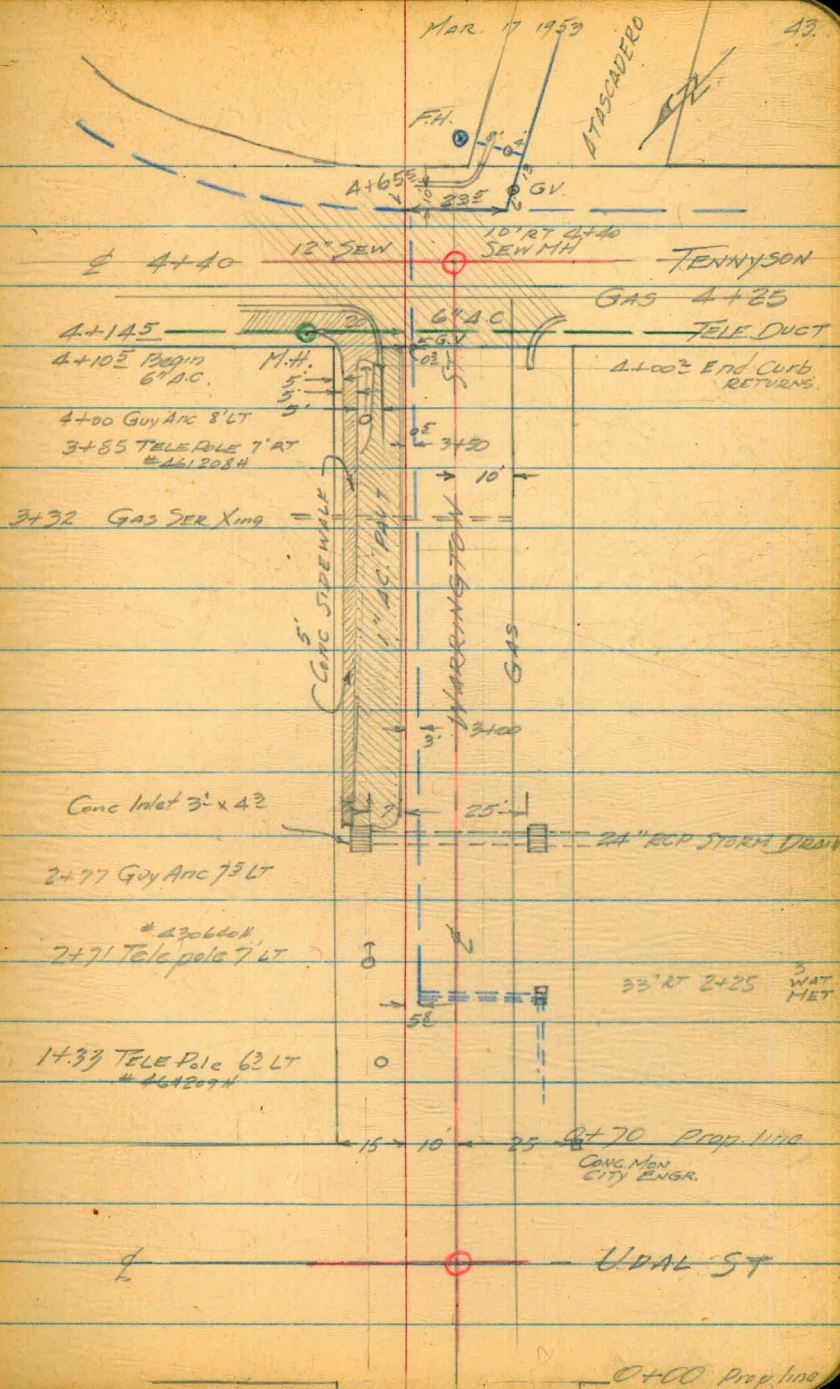 MAR. 17 1953
43.
ATASCADERO
F.H.
8'
4'
13
GV.
2
4+65⁵
10'
23⁵
10' RT 4+40
12" SEW
SEW MH
℄ 4+40
TENNYSON
GAS 4+25
20
6" A.C
4+14⁵
TELE DUCT
G.V
0²
ST
4+10⁵ Begin
6" A.C.
M.H.
5'
5'
5'
4+00² End Curb
RETURNS.
4+00 Guy Anc 8' LT
3+85 TELE POLE 7' RT
#461208H
0⁵
3+50
10'
3+32 Gas Ser Xing
5'
CONC SIDEWALK
1" AC. PAVT
WARRINGTON
GAS
3'
3+00
Conc Inlet 3¹ x 4³
7
25'
24" RCP STORM DRAIN
2+77 Guy Anc 7⁵ LT
#430640H
2+71 Tele pole 7' LT
℄
33' RT 2+25
3
WAT
MET
5⁸
1+33 TELE Pole 6³ LT
#464209H
15
10'
25
0+70 Prop. line
CONC. MON
CITY ENGR.
℄
UDAL ST
0+00 Prop. line